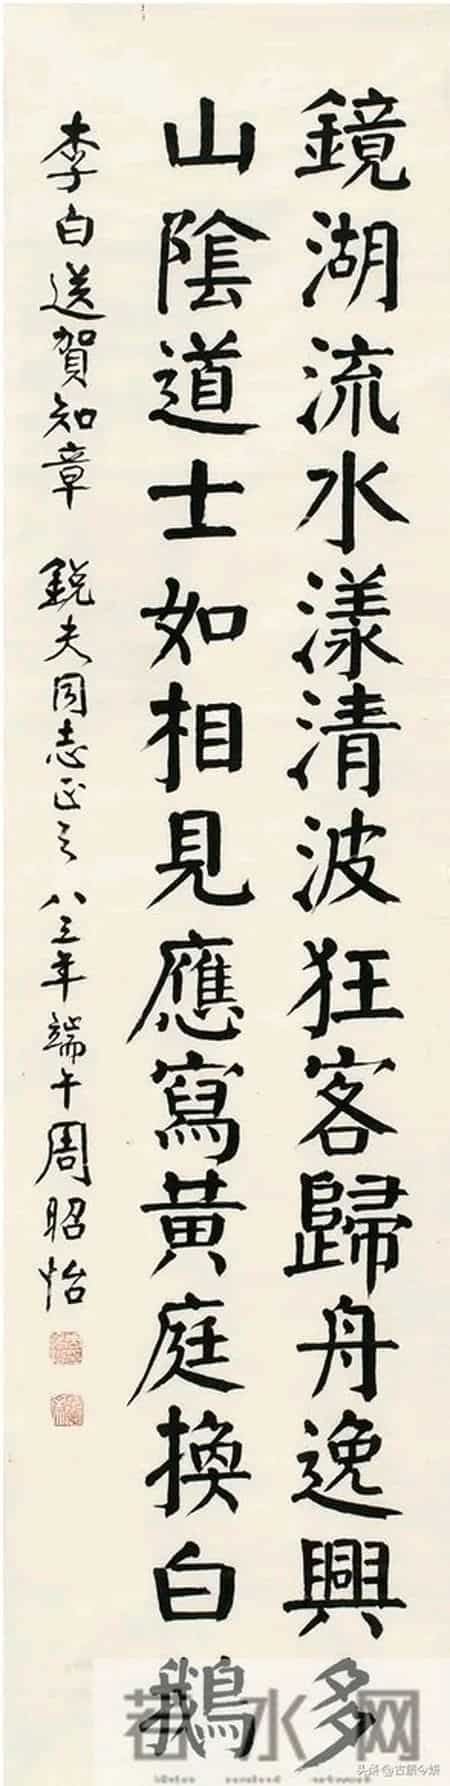 鏡湖流水漾清波狂客歸舟逸興多
山陰道士如相見應寫黃庭換白鵝
李白送賀知章 銳夫同志正之 八三年端午周昭怡
若水网
头条@古韵今妍